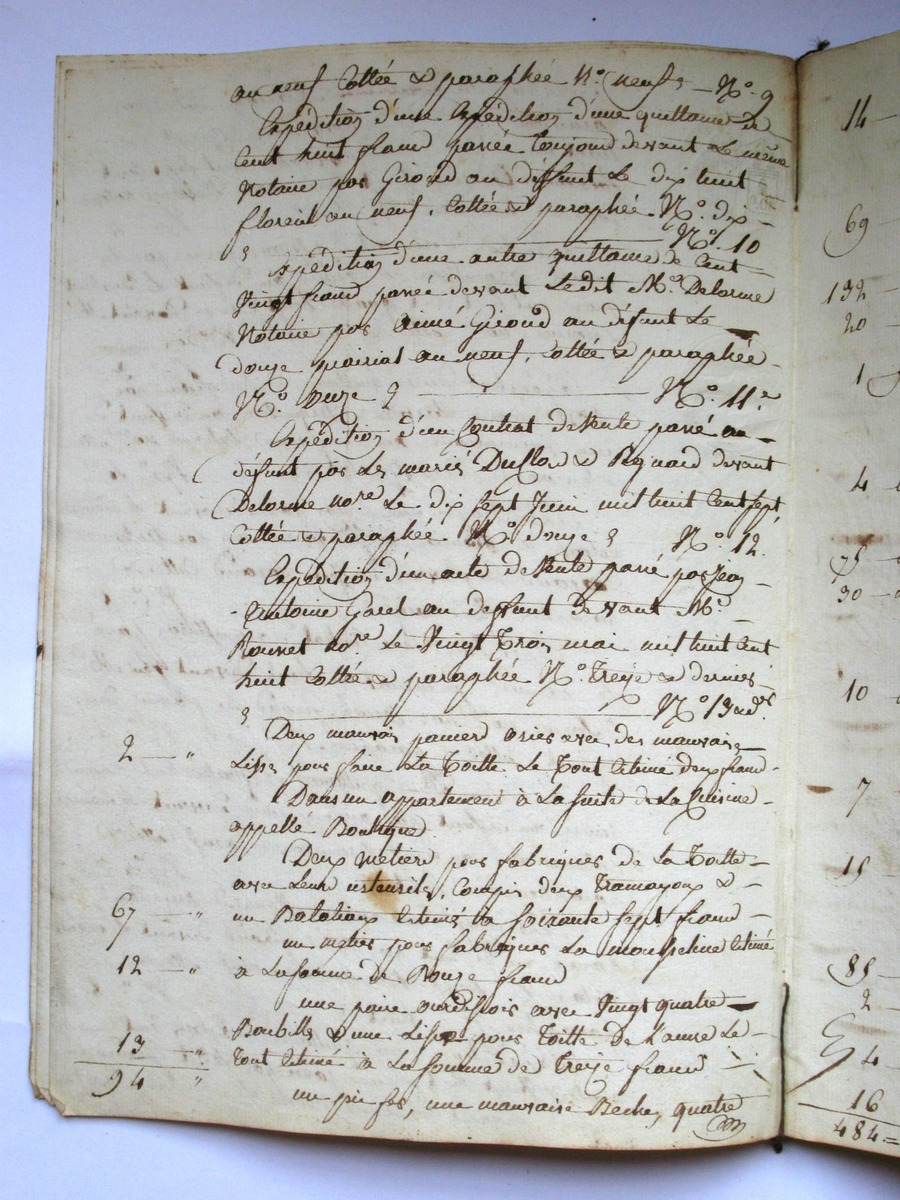 an neuf Cottée & paraphée N.° neuf — N.° 9
Expédition d'une Expédition d'une quittance de
Cent huit francs passée toujours devant Le même
Notaire par Giroud au défunt Le dix huit
floreal an neuf, Cottée & paraphée N.° dix —
N.° 10
Expédition d'une autre quittance de Cent —
Vingt francs passée devant Ledit M.e Delorme
Notaire par Aimé Giroud au défunt Le —
douze prairial an neuf, Cottée & paraphée —
N.° onze — N.° 11.e
Expédition d'un Contrat de Vente passé au —
défunt par Les mariés & Reynard devant
Delorme no.re Le dix sept Juin mil huit Cent sept
Cottée & paraphée N.° douze N.° 12.
Expédition d'un acte de Vente passé par Jean —
Antoine Garel au deffunt Devant M.e
no.re Le Vingt Trois mai mil huit Cent
huit Cottée & paraphée N.° Treize & dernier
N.° 13 & d.er
2 — " Deux mauvais paniers osier avec des mauvaise
Lisse pour faire La Toille Le Tout Estimé deux francs —
Dans un appartement à La suite de La Cuisine —
appellé Boutique
Deux metiers pour fabriquer de La Toille —
avec Leurs ustensils, Compris deux & —
67 — " un Estimés soixante sept francs —
un metier pour fabriquer La mousseline Estimé
12 — " à La somme de Douze francs
une paire ourdissois avec Vingt quatre —
Boubills & une Lisse pour Toille De Le —
13 — " Tout Estimé à La somme de Treize francs
94 "
un pic fer, une mauvaise Beche, quatre
14 —
69 —
132 —
20 —
1
4
75
30 —
10
7
15
85 —
2 —
4
16
484 =